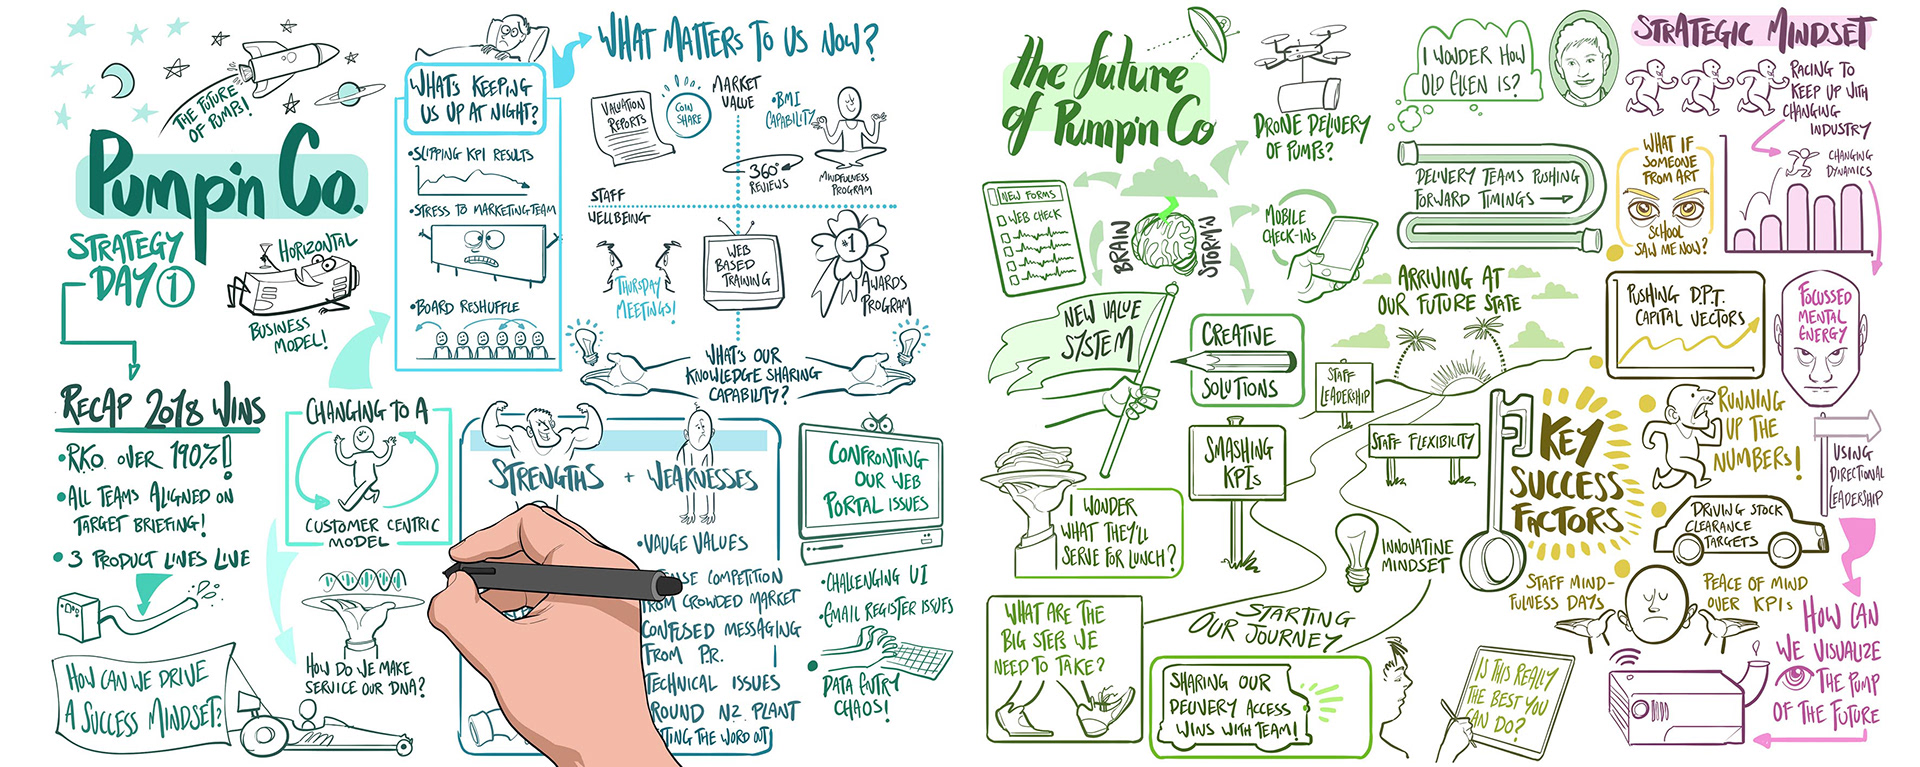 THE FUTURE
OF PUMPS!
Pump'n Co.
STRATEGY
DAY 1
HORIZONTAL
BUSINESS
MODEL!
RECAP 2018 WINS
•RKO. OVER 190%!
•ALL TEAMS ALIGNED ON
TARGET BRIEFING!
• 3 PRODUCT LINES LIVE
HOW CAN WE DRIVE
A SUCCESS MINDSET?
CHANGING TO A
CUSTOMER CENTRIC
MODEL
HOW DO WE MAKE
SERVICE OUR DNA?
WHAT'S KEEPING
US UP AT NIGHT?
•SLIPPING KPI RESULTS
•STRESS TO MARKETING TEAM
•BOARD RESHUFFLE
WHAT MATTERS TO US NOW?
VALUATION
REPORTS
COIN
SHARE
MARKET
VALUE
•BMI
CAPABILITY
360°
REVIEWS
MINDFULNESS
PROGRAM
STAFF
WELLBEING
THURSDAY
MEETINGS!
WEB
BASED
TRAINING
#1
AWARDS
PROGRAM
WHAT'S OUR
KNOWLEDGE SHARING
CAPABILITY?
STRENGTHS + WEAKNESSES
•VAUGE VALUES
COMPETITION
FROM CROWDED MARKET
CONFUSED MESSAGING
FROM P.R.
TECHNICAL ISSUES
ROUND NZ. PLANT
THE WORD OUT
CONFRONTING
OUR WEB
PORTAL ISSUES
•CHALLENGING UI
•EMAIL REGISTER ISSUES
• DATA ENTRY
CHAOS!
The future
of Pump'n Co
DRONE DELIVERY
OF PUMPS?
NEW FORMS
WEB CHECK
BRAIN
STORM'N
MOBILE
CHECK-INS
NEW VALUE
SYSTEM
CREATIVE
SOLUTIONS
SMASHING
KPIs
I WONDER
WHAT THEY'LL
SERVE FOR LUNCH?
WHAT ARE THE
BIG STEPS WE
NEED TO TAKE?
STARTING
OUR JOURNEY
SHARING OUR
DELIVERY ACCESS
WINS WITH TEAM!
I WONDER HOW
OLD ELLEN IS?
DELIVERY TEAMS PUSHING
FORWARD TIMINGS →
ARRIVING AT
OUR FUTURE STATE
STAFF
LEADERSHIP
STAFF FLEXIBILITY
INNOVATINE
MINDSET
IS THIS REALLY
THE BEST YOU
CAN DO?
KEY
SUCCESS
FACTORS
WHAT IF
SOMEONE
FROM ART
SCHOOL
SAW ME NOW?
PUSHING D.P.T.
CAPITAL VECTORS
RUNNING
UP THE
NUMBERS!
DRIVING STOCK
CLEARANCE
TARGETS
STAFF MIND-
FULNESS DAYS
PEACE OF MIND
OVER KPIs
STRATEGIC MINDSET
RACING TO
KEEP UP WITH
CHANGING
INDUSTRY
CHANGING
DYNAMICS
FOCUSSED
MENTAL
ENERGY
USING
DIRECTIONAL
LEADERSHIP
HOW CAN
WE VISUALIZE
THE PUMP
OF THE FUTURE